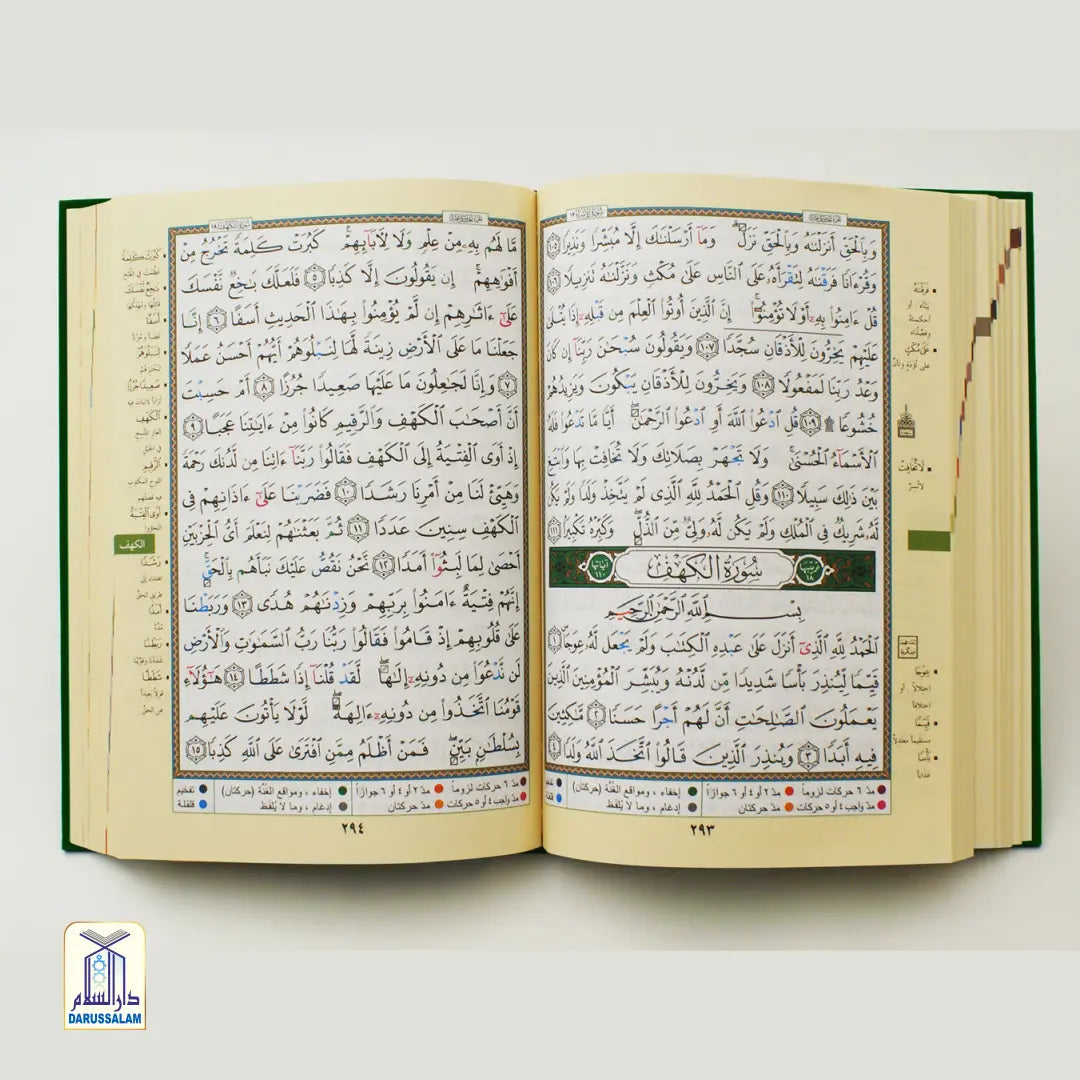 سورة الإسراء ١٧
الجزء الخامس عشر
وَبِٱلْحَقِّ أَنزَلْنَٰهُ وَبِٱلْحَقِّ نَزَلَ ۗ وَمَآ أَرْسَلْنَٰكَ إِلَّا مُبَشِّرًا وَنَذِيرًا ١٠٥
وَقُرْءَانًا فَرَقْنَٰهُ لِتَقْرَأَهُۥ عَلَى ٱلنَّاسِ عَلَىٰ مُكْثٍ وَنَزَّلْنَٰهُ تَنزِيلًا ١٠٦
قُلْ ءَامِنُوا۟ بِهِۦٓ أَوْ لَا تُؤْمِنُوٓا۟ ۚ إِنَّ ٱلَّذِينَ أُوتُوا۟ ٱلْعِلْمَ مِن قَبْلِهِۦٓ إِذَا يُتْلَىٰ
عَلَيْهِمْ يَخِرُّونَ لِلْأَذْقَانِ سُجَّدًا ١٠٧ وَيَقُولُونَ سُبْحَٰنَ رَبِّنَآ إِن كَانَ
وَعْدُ رَبِّنَا لَمَفْعُولًا ١٠٨ وَيَخِرُّونَ لِلْأَذْقَانِ يَبْكُونَ وَيَزِيدُهُمْ
خُشُوعًا ۩ ١٠٩ قُلِ ٱدْعُوا۟ ٱللَّهَ أَوِ ٱدْعُوا۟ ٱلرَّحْمَٰنَ ۖ أَيًّا مَّا تَدْعُوا۟ فَلَهُ
ٱلْأَسْمَآءُ ٱلْحُسْنَىٰ ۚ وَلَا تَجْهَرْ بِصَلَاتِكَ وَلَا تُخَافِتْ بِهَا وَٱبْتَغِ
بَيْنَ ذَٰلِكَ سَبِيلًا ١١٠ وَقُلِ ٱلْحَمْدُ لِلَّهِ ٱلَّذِى لَمْ يَتَّخِذْ وَلَدًا وَلَمْ يَكُن
لَّهُۥ شَرِيكٌ فِى ٱلْمُلْكِ وَلَمْ يَكُن لَّهُۥ وَلِىٌّ مِّنَ ٱلذُّلِّ ۖ وَكَبِّرْهُ تَكْبِيرًۢا ١١١
ترتيبها ١٨ سُورَةُ الكَهْف آياتها ١١٠
بِسْمِ ٱللَّهِ ٱلرَّحْمَٰنِ ٱلرَّحِيمِ
ٱلْحَمْدُ لِلَّهِ ٱلَّذِىٓ أَنزَلَ عَلَىٰ عَبْدِهِ ٱلْكِتَٰبَ وَلَمْ يَجْعَل لَّهُۥ عِوَجَا ۜ ١
قَيِّمًا لِّيُنذِرَ بَأْسًا شَدِيدًا مِّن لَّدُنْهُ وَيُبَشِّرَ ٱلْمُؤْمِنِينَ ٱلَّذِينَ
يَعْمَلُونَ ٱلصَّٰلِحَٰتِ أَنَّ لَهُمْ أَجْرًا حَسَنًا ٢ مَّٰكِثِينَ
فِيهِ أَبَدًا ٣ وَيُنذِرَ ٱلَّذِينَ قَالُوا۟ ٱتَّخَذَ ٱللَّهُ وَلَدًا ٤
مدّ ٦ حركات لزوماً مدّ ٢ أو ٤ أو ٦ جوازاً إخفاء ، ومواقع الغنّة (حركتان)
مدّ واجب ٤ أو ٥ حركات مدّ حركتان إدغام ، وما لا يُلفَظ
٢٩٣
فرقناه
على مكث
لا تخافت
عوجا
قيما
بأسا
سورة الكهف ١٨
الجزء الخامس عشر
مَّا لَهُم بِهِۦ مِنْ عِلْمٍ وَلَا لِءَابَآئِهِمْ ۚ كَبُرَتْ كَلِمَةً تَخْرُجُ مِنْ
أَفْوَٰهِهِمْ ۚ إِن يَقُولُونَ إِلَّا كَذِبًا ٥ فَلَعَلَّكَ بَٰخِعٌ نَّفْسَكَ
عَلَىٰٓ ءَاثَٰرِهِمْ إِن لَّمْ يُؤْمِنُوا۟ بِهَٰذَا ٱلْحَدِيثِ أَسَفًا ٦ إِنَّا
جَعَلْنَا مَا عَلَى ٱلْأَرْضِ زِينَةً لَّهَا لِنَبْلُوَهُمْ أَيُّهُمْ أَحْسَنُ عَمَلًا
٧ وَإِنَّا لَجَٰعِلُونَ مَا عَلَيْهَا صَعِيدًا جُرُزًا ٨ أَمْ حَسِبْتَ
أَنَّ أَصْحَٰبَ ٱلْكَهْفِ وَٱلرَّقِيمِ كَانُوا۟ مِنْ ءَايَٰتِنَا عَجَبًا ٩
إِذْ أَوَى ٱلْفِتْيَةُ إِلَى ٱلْكَهْفِ فَقَالُوا۟ رَبَّنَآ ءَاتِنَا مِن لَّدُنكَ رَحْمَةً
وَهَيِّئْ لَنَا مِنْ أَمْرِنَا رَشَدًا ١٠ فَضَرَبْنَا عَلَىٰٓ ءَاذَانِهِمْ فِى
ٱلْكَهْفِ سِنِينَ عَدَدًا ١١ ثُمَّ بَعَثْنَٰهُمْ لِنَعْلَمَ أَىُّ ٱلْحِزْبَيْنِ
أَحْصَىٰ لِمَا لَبِثُوٓا۟ أَمَدًا ١٢ نَّحْنُ نَقُصُّ عَلَيْكَ نَبَأَهُم بِٱلْحَقِّ ۚ
إِنَّهُمْ فِتْيَةٌ ءَامَنُوا۟ بِرَبِّهِمْ وَزِدْنَٰهُمْ هُدًى ١٣ وَرَبَطْنَا
عَلَىٰ قُلُوبِهِمْ إِذْ قَامُوا۟ فَقَالُوا۟ رَبُّنَا رَبُّ ٱلسَّمَٰوَٰتِ وَٱلْأَرْضِ
لَن نَّدْعُوَا۟ مِن دُونِهِۦٓ إِلَٰهًا ۖ لَّقَدْ قُلْنَآ إِذًا شَطَطًا ١٤ هَٰٓؤُلَآءِ
قَوْمُنَا ٱتَّخَذُوا۟ مِن دُونِهِۦٓ ءَالِهَةً ۖ لَّوْلَا يَأْتُونَ عَلَيْهِم
بِسُلْطَٰنٍۭ بَيِّنٍ ۖ فَمَنْ أَظْلَمُ مِمَّنِ ٱفْتَرَىٰ عَلَى ٱللَّهِ كَذِبًا ١٥
مدّ ٦ حركات لزوماً مدّ ٢ أو ٤ أو ٦ جوازاً إخفاء ، ومواقع الغنّة (حركتان) تفخيم
مدّ واجب ٤ أو ٥ حركات مدّ حركتان إدغام ، وما لا يُلفَظ قلقلة
٢٩٤
كبرت كلمة
باخع نفسك
أسفا
لنبلوهم
صعيدا جرزا
الكهف
الرقيم
أوى الفتية
الكهف
رشدا
أمدا
ربطنا
شططا
دار السلام
DARUSSALAM